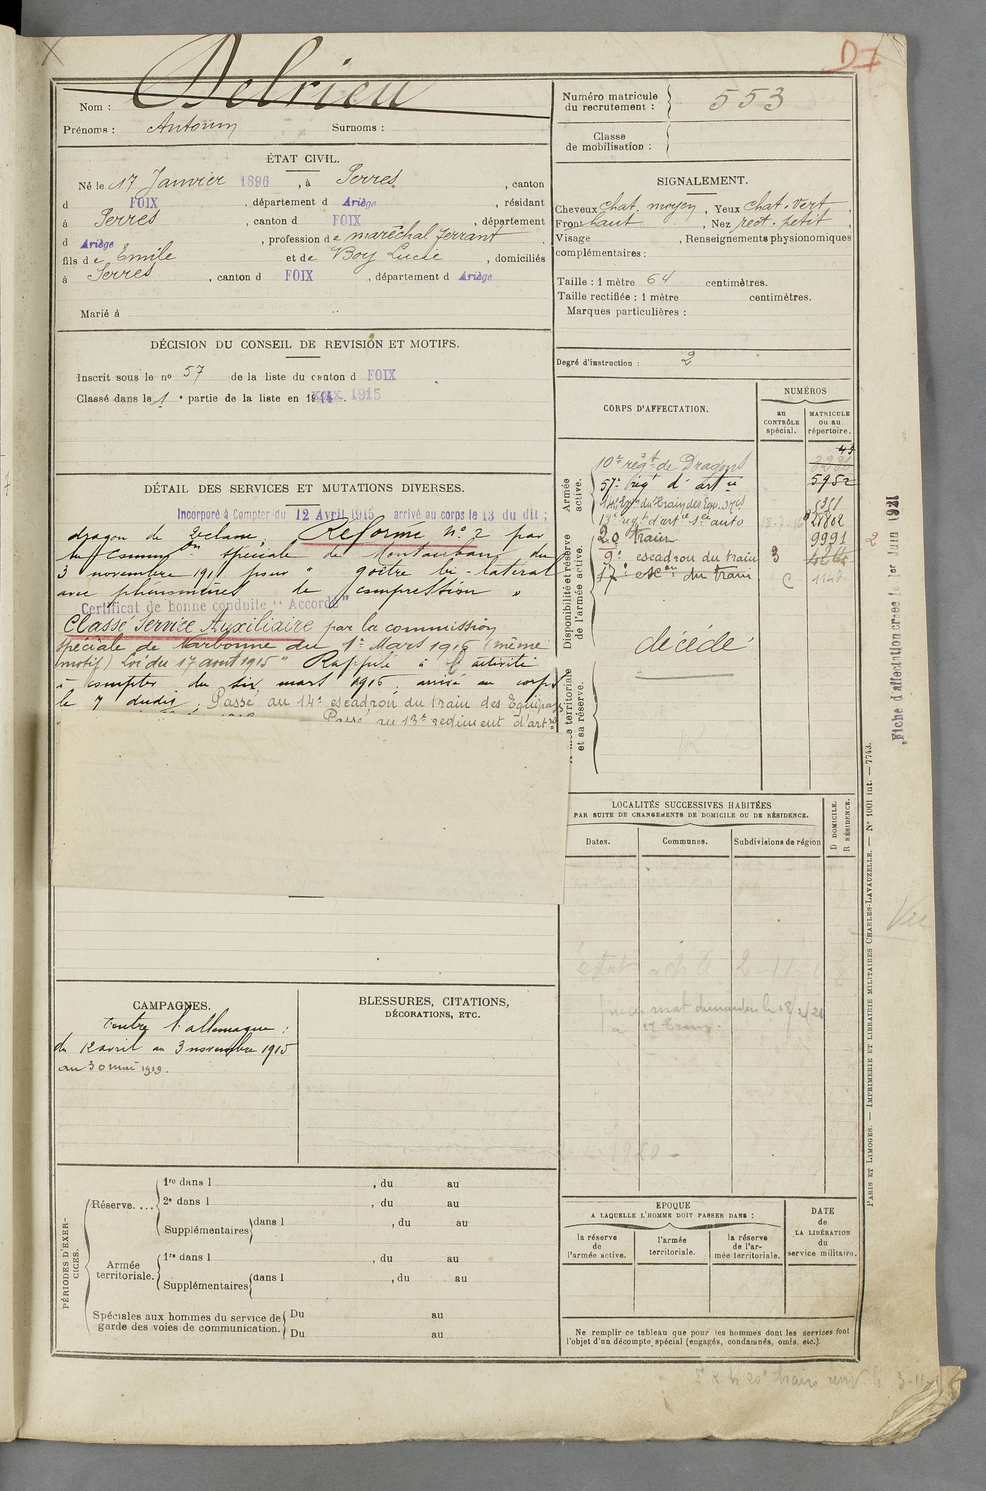 D7
Nom : Delrieu
Prénoms : Antonin Surnoms :
ÉTAT CIVIL.
Né le 17 Janvier 1896, à Serres, canton
d FOIX, département d Ariège, résidant
à Serres, canton d FOIX, département
d Ariège, profession de maréchal ferrant
fils de Emile et de Boy Lucie, domiciliés
à Serres, canton d FOIX, département d Ariège
Marié à
DÉCISION DU CONSEIL DE REVISION ET MOTIFS.
Inscrit sous le no 57 de la liste du canton d FOIX
Classé dans la 1e partie de la liste en 1915
DÉTAIL DES SERVICES ET MUTATIONS DIVERSES.
Incorporé à Compter du 12 Avril 1915 arrivé au corps le 13 du dit ;
dragon de 2e classe. Réformé No 2 par
la Commission spéciale de Montauban du
3 novembre 1915 pour " goître bi-latéral
avec phénomènes de compression "
Certificat de bonne conduite " Accordé "
Classé Service Auxiliaire par la commission
spéciale de Narbonne du 1er Mars 1916 (même
motif) Loi du 17 août 1915" Rappelé à l'activité
à compter du six mars 1916, arrivé au corps
le 7 dudit. Passé au 14e escadron du train des Equipages
Passé au 13e régiment d'art
CAMPAGNES.
Contre l'allemagne :
du 12 avril au 3 novembre 1915
au 30 mai 1919.
BLESSURES, CITATIONS,
DÉCORATIONS, ETC.
PÉRIODES D'EXERCICES.
Réserve....
1re dans l , du au
2e dans l , du au
Supplémentaires dans l , du au
Armée territoriale.
1re dans l , du au
Supplémentaires dans l , du au
Spéciales aux hommes du service de garde des voies de communication.
Du au
Du au
Numéro matricule du recrutement : 553
Classe de mobilisation :
SIGNALEMENT.
Cheveux chat. moyen, Yeux chat. vert,
Front haut, Nez rect. petit,
Visage , Renseignements physionomiques
complémentaires :
Taille : 1 mètre 64 centimètres.
Taille rectifiée : 1 mètre centimètres.
Marques particulières :
Degré d'instruction : 2
CORPS D'AFFECTATION.
NUMÉROS
au CONTRÔLE spécial.
MATRICULE ou au répertoire.
Armée active.
10e régt de Dragons
57e régt d'artie 5952
14e Esqon du Train des Equ. 
13e régt d'artie son auto
Disponibilité et réserve de l'armée active.
20 train 9991
9e escadron du train 3
17e escon du train C
décédé
Armée territoriale et sa réserve.
LOCALITÉS SUCCESSIVES HABITÉES
PAR SUITE DE CHANGEMENTS DE DOMICILE OU DE RÉSIDENCE.
Dates.
Communes.
Subdivisions de région
D DOMICILE.
R RÉSIDENCE.
EPOQUE
A LAQUELLE L'HOMME DOIT PASSER DANS :
la réserve de l'armée active.
l'armée territoriale.
la réserve de l'armée territoriale.
DATE de LA LIBÉRATION du service militaire.
Ne remplir ce tableau que pour les hommes dont les services font
l'objet d'un décompte spécial (engagés, condamnés, omis, etc.).
Fiche d'affectation créée le 1er Juin 1921
2
PARIS ET LIMOGES. — IMPRIMERIE ET LIBRAIRIE MILITAIRES CHARLES-LAVAUZELLE. — No 1001 int. — 7743.